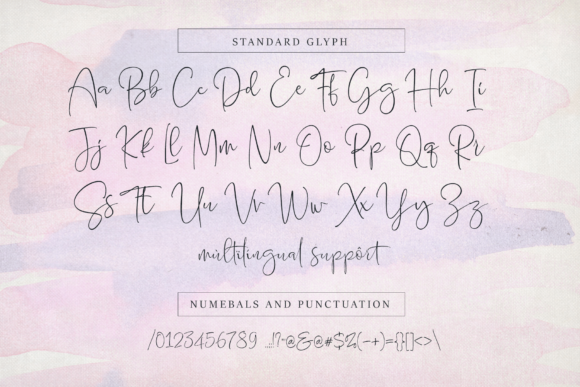 STANDARD GLYPH
Aa Bb Cc Dd Ee Ff Gg Hh Ii
Jj Kk Ll Mm Nn Oo Pp Qq Rr
Ss Tt Uu Vv Ww Xx Yy Zz
múltilingual suppórt
NUMEBALS AND PUNCTUATION
/0123456789 @&@#$